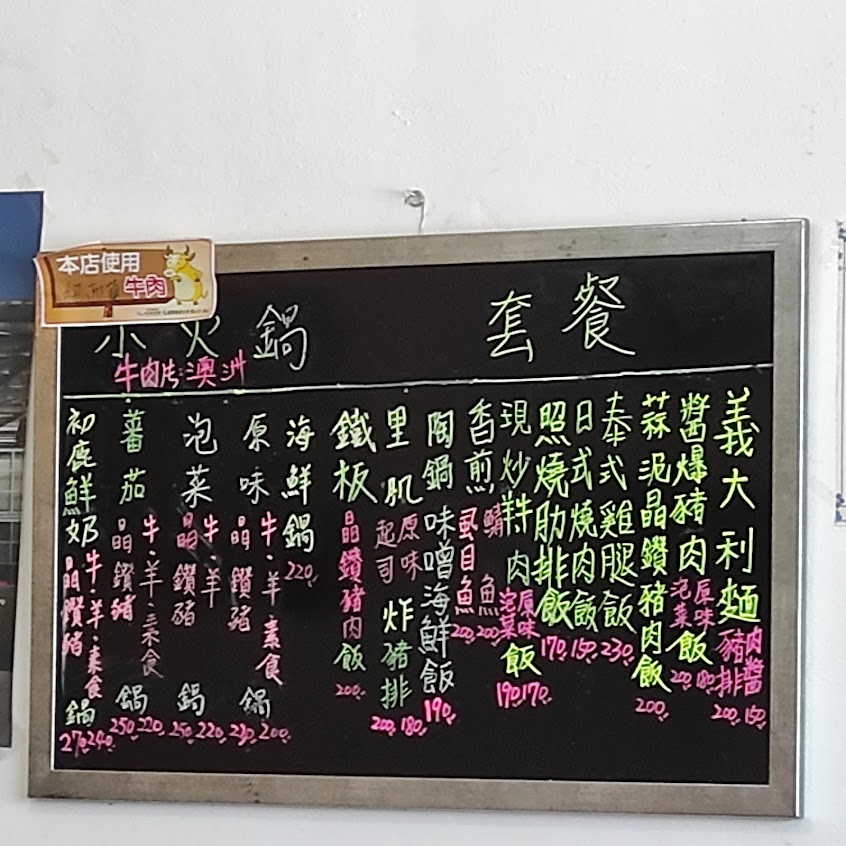 套餐
義大利麵
肉醬 150
豬排 200
醬爆豬肉飯
原味 180
泡菜 200
蒜泥晶鑽豬肉飯 200
泰式雞腿飯 230
日式燒肉飯 150
照燒肋排飯 170
現炒羊肉飯
原味 170
泡菜 190
香煎
鯖魚 200
虱目魚 200
陶鍋味噌海鮮飯 190
里肌炸豬排
原味 180
起司 200
鐵板晶鑽豬肉飯 200
本店使用
牛肉
小火鍋
牛肉片:澳洲
海鮮鍋 220
原味鍋
牛·羊·素食 200
晶鑽豬
泡菜鍋
牛·羊 220
晶鑽豬 250
蕃茄鍋
牛·羊·素食 220
晶鑽豬 250
初鹿鮮奶鍋
牛·羊·素食 240
晶鑽豬 270